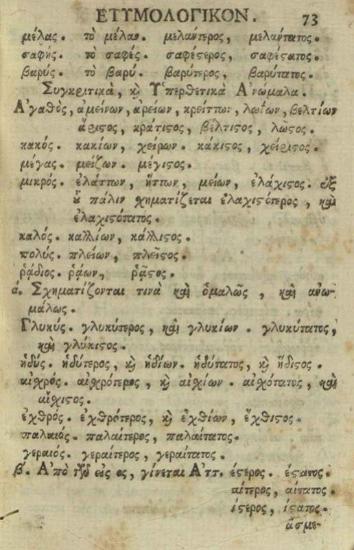 ΕΤΥΜΟΛΟΓΙΚΟΝ. 73
μέλας. τὸ μέλαν. μελάντερος, μελάντατος.
σαφής. τὸ σαφές. σαφέςερος, σαφέςατος.
βαρύς. τὸ βαρύ. βαρύτερος, βαρύτατος.
Συγκριτικά, ϗ Ὑπερθετικὰ Ἀνώμαλα.
Ἀγαθὸς, ἀμείνων, ἀρείων, κρείττων, λωΐων, βελτίων
ἄριςος, κράτιςος, βέλτιςος, λῶςος.
κακός. κακίων, χείρων. κάκιςος, χείριςος.
μέγας. μείζων. μέγιςος.
μικρός. ἐλάττων, ἥττων, μείων, ἐλάχιςος. ἐξ
ȣ͂ πάλιν χηματίζεται ἐλαχιςότερος, καὶ
ἐλαχιςότατος.
καλός. καλλίων, κάλλιςος.
πολύς. πλείων, πλεῖςος.
ῥᾴδιος. ῥᾴων, ῥᾷςος.
α. Σχηματίζονται τινὰ καὶ ὁμαλῶς, καὶ ἀνω-
μάλως.
Γλυκύς. γλυκύτερος, καὶ γλυκίων. γλυκύτατος,
καὶ γλύκιςος.
ἡδύς. ἡδύτερος, ϗ ἡδίων. ἡδύτατος, ϗ ἥδιςος.
αἰχρός. αἰχρότερος, ϗ αἰχίων. αἰχρότατος, καὶ
αἴχιςος.
ἐχθρός. ἐχθρότερος, ϗ ἐχθίων, ἔχθιςος.
παλαιός. παλαίτερος, παλαίτατος.
γεραιός. γεραίτερος, γεραίτατος.
β. Ἀπὸ τῶν εἰς ος, γίνεται Ἀττ. έςερος. έςατος.
αίτερος, αίτατος.
ίςερος, ίςατος.
ἀσμε-